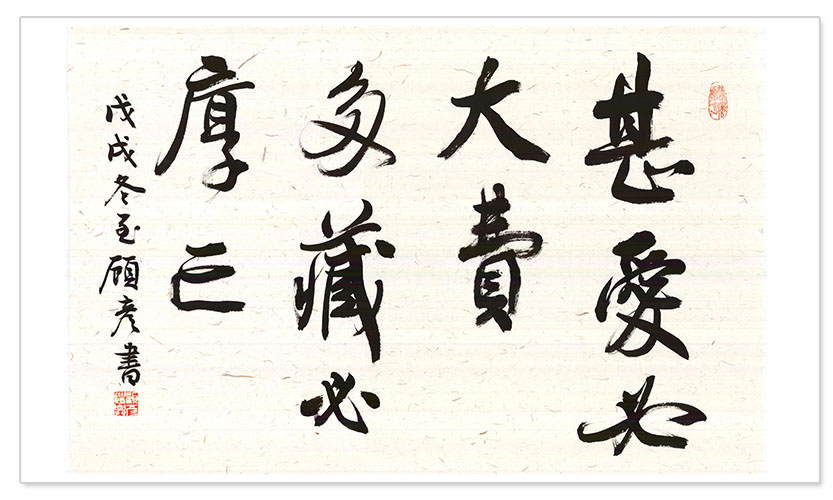 甚愛必
大費
多藏必
厚亡
戊戌冬至顧彥書